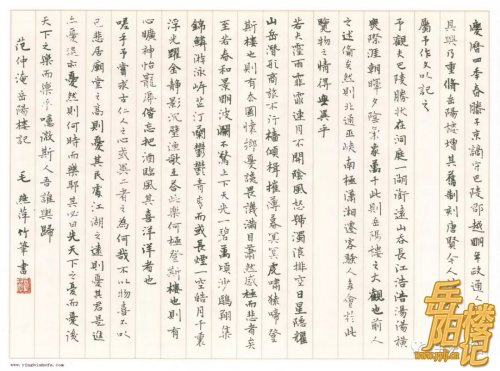 慶曆四年春滕子京謫守巴陵郡越明年政通人
具興乃重脩岳陽樓增其舊制刻唐賢今人
屬予作文以記之
予觀夫巴陵勝狀在洞庭一湖銜遠山吞長江浩浩湯湯橫
無際涯朝暉夕陰氣象萬千此則岳陽樓之大觀也前人
之述備矣然則北通巫峽南極瀟湘遷客騷人多會於此
覽物之情得無異乎
若夫霪雨霏霏連月不開陰風怒號濁浪排空日星隱耀
山岳潛形商旅不行檣傾楫摧薄暮冥冥虎嘯猿啼登
斯樓也則有去國懷鄉憂讒畏譏滿目蕭然感極而悲者矣
至若春和景明波瀾不驚上下天光一碧萬頃沙鷗翔集
錦鱗游泳岸芷汀蘭鬱鬱青青而或長煙一空皓月千里
浮光躍金靜影沉璧漁歌互答此樂何極登斯樓也則有
心曠神怡寵辱偕忘把酒臨風其喜洋洋者也
嗟乎予嘗求古仁人之心或異二者之為何哉不以物喜不以
己悲居廟堂之高則憂其民處江湖之遠則憂其君是進
亦憂退亦憂然則何時而樂耶其必曰先天下之憂而憂後
天下之樂而樂乎噫微斯人吾誰與歸
范仲淹岳陽樓記 毛燕萍竹筆書
岳阳楼记
www.yingbishufa.com